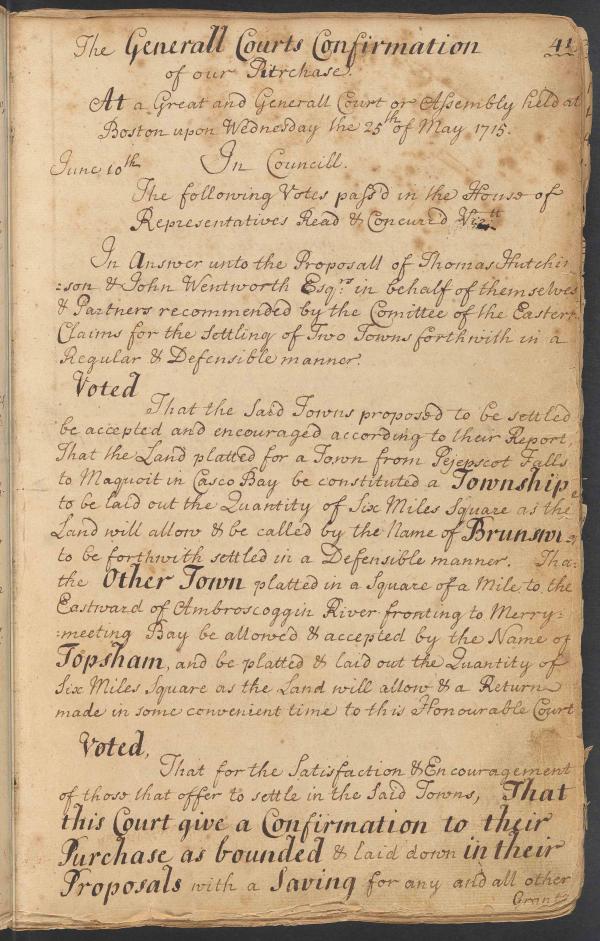 41
The Generall Courts Confirmation
of our Purchase.
At a Great and Generall Court or Assembly held at
Boston upon Wednesday the 25th of May 1715.
June 10th In Councill.
The following Votes pass'd in the House of
Representatives Read & Concured Vizt
In Answer unto the Proposall of Thomas Hutchin
:son & John Wentworth Esqrs in behalf of themselves
& Partners recommended by the Comittee of the Eastern
Claims for the Settling of Two Towns forthwith in a
Regular & Defensible manner.
Voted
That the Said Towns proposed to be settled
be accepted and encouraged according to their Report,
That the Land platted for a Town from Pejepscot Falls
to Maquoit in Casco Bay be constituted a Township
to be laid out the Quantity of Six Miles Square as the
Land will allow & be called by the Name of Brunswi
to be forthwith settled in a Defensible manner. Tha:
the Other Town platted in a Square of a Mile to the
Eastward of Ambroscoggin River fronting to Merry:
:meeting Bay be allowed & accepted by the Name of
Topsham, and be platted & laid out the Quantity of
Six Miles Square as the Land will allow & a Return
made in some convenient time to this Honourable Court
Voted,
That for the Satisfaction & Encouragement
of those that offer to settle in the Said Towns, That
this Court give a Confirmation to their
Purchase as bounded & laid down in their
Proposals with a Saving for any and all other
Grants